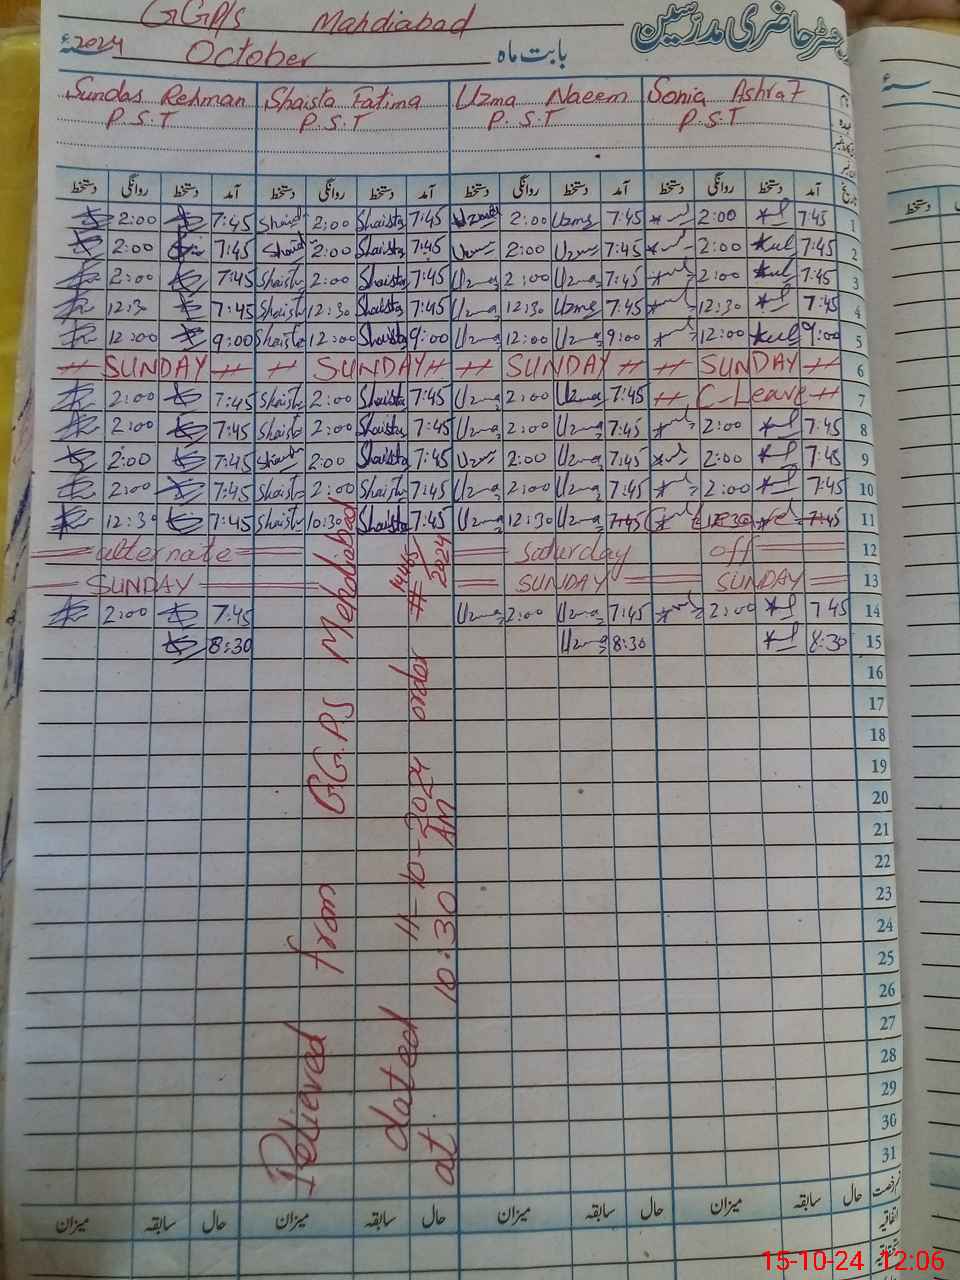 GGP/S Mahdiabad رجسٹر حاضری مدرسین
2024ء October بابت ماہ
Sundas Rehman Shaista Fatima Uzma Naeem Sonia Ashraf
P.S.T P.S.T P.S.T P.S.T
دستخط روانگی دستخط آمد دستخط روانگی دستخط آمد دستخط روانگی دستخط آمد دستخط روانگی دستخط آمد تاریخ
2:00 7:45 Shaist 2:00 Shaista 7:45 Uzma 2:00 Uzma 7:45 2:00 7:45 1
2:00 7:45 Shaist 2:00 Shaista 7:45 Uzma 2:00 Uzma 7:45 2:00 7:45 2
2:00 7:45 Shaist 2:00 Shaista 7:45 Uzma 2:00 Uzma 7:45 2:00 7:45 3
12:30 7:45 Shaist 12:30 Shaista 7:45 Uzma 12:30 Uzma 7:45 12:30 7:45 4
12:00 9:00 Shaist 12:00 Shaista 9:00 Uzma 12:00 Uzma 9:00 12:00 9:00 5
SUNDAY SUNDAY SUNDAY SUNDAY 6
2:00 7:45 Shaist 2:00 Shaista 7:45 Uzma 2:00 Uzma 7:45 C-Leave 7
2:00 7:45 Shaist 2:00 Shaista 7:45 Uzma 2:00 Uzma 7:45 2:00 7:45 8
2:00 7:45 2:00 Shaista 7:45 Uzma 2:00 Uzma 7:45 2:00 7:45 9
2:00 7:45 Shaist 2:00 Shaist 7:45 Uzma 2:00 Uzma 7:45 2:00 7:45 10
12:30 7:45 Shaist 10:30 Shaista 7:45 Uzma 12:30 Uzma 7:45 12:30 7:45 11
alternate Saturday off 12
SUNDAY SUNDAY SUNDAY 13
2:00 7:45 Uzma 2:00 Uzma 7:45 2:00 7:45 14
8:30 Uzma 8:30 8:30 15
16
17
18
19
20
21
22
23
24
25
26
27
28
29
30
31
Relieved from GG.P/S Mehdiabad
dated 11-10-2024 order #
2024
at 10:30 AM
میزان سابقہ حال میزان سابقہ حال میزان سابقہ حال میزان سابقہ حال
اتفاقیہ
دستخط
15-10-24 12:06